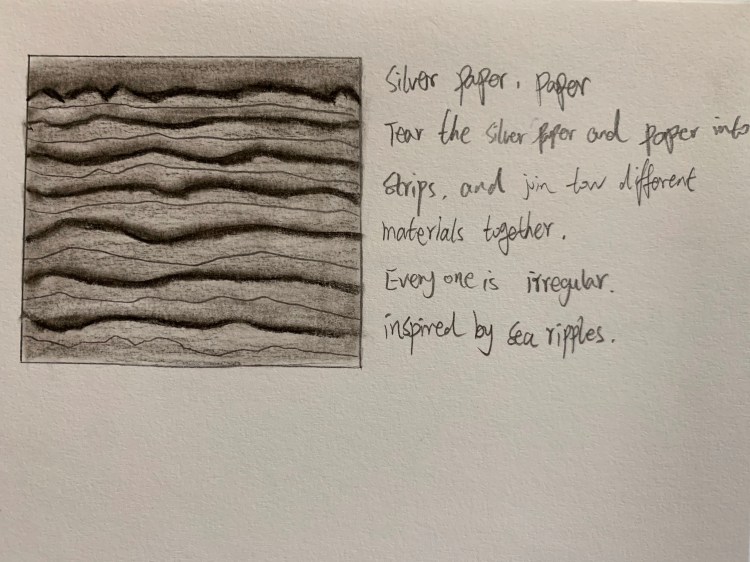 Silver paper, paper
Tear the silver paper and paper into
strips, and join tow different
materials together.
Every one is irregular.
inspired by sea ripples.